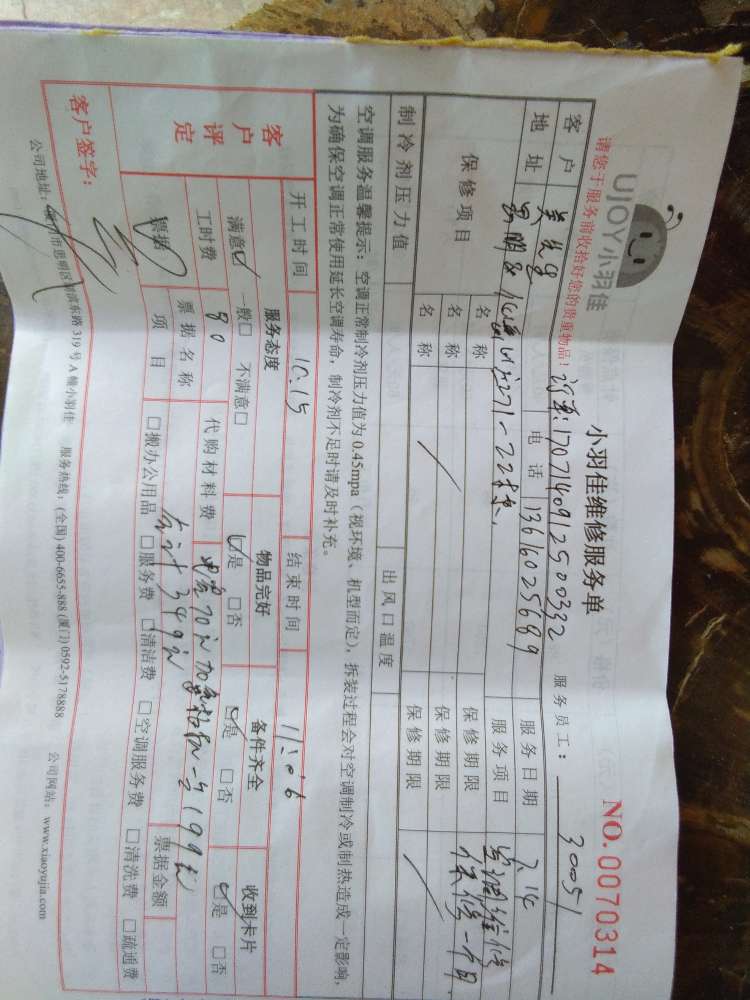 UJOY小羽佳
小羽佳维修服务单
NO.0070314
请您于服务前收拾好您的贵重物品!
1707140912500332
服务员工: 30051
客户 吴先生 电话 13616025689 服务日期 7.14
地址 227-228 服务项目 空调维修
保修项目 名称 保修期限 保修一个月
名称 保修期限
名称 保修期限
制冷剂压力值 出风口温度
空调服务温馨提示: 空调正常制冷剂压力值为 0.45mpa（视环境、机型而定），拆装过程会对空调制冷或制热造成一定影响，
为确保空调正常使用延长空调寿命，制冷剂不足时请及时补充。
客户评定
开工时间 10.15 结束时间 11:06
服务态度 物品完好 备件齐全 收到卡片
满意☑ 一般□ 不满意□ ☑是 □否 ☑是 □否 ☑是 □否
工时费 80 代购材料费 电容70元 199元
票据 票据名称 合计349元 票据金额
项目 □搬办公用品 □服务费 □清洁费 □空调服务费 □清洗费 □疏通费
客户签字:
市思明区 东路 319 号 A 幢小羽佳 服务热线: (全国) 400-6655-888 (厦门) 0592-5178888 公司网站: www.xiaoyujia.com
公司地址: